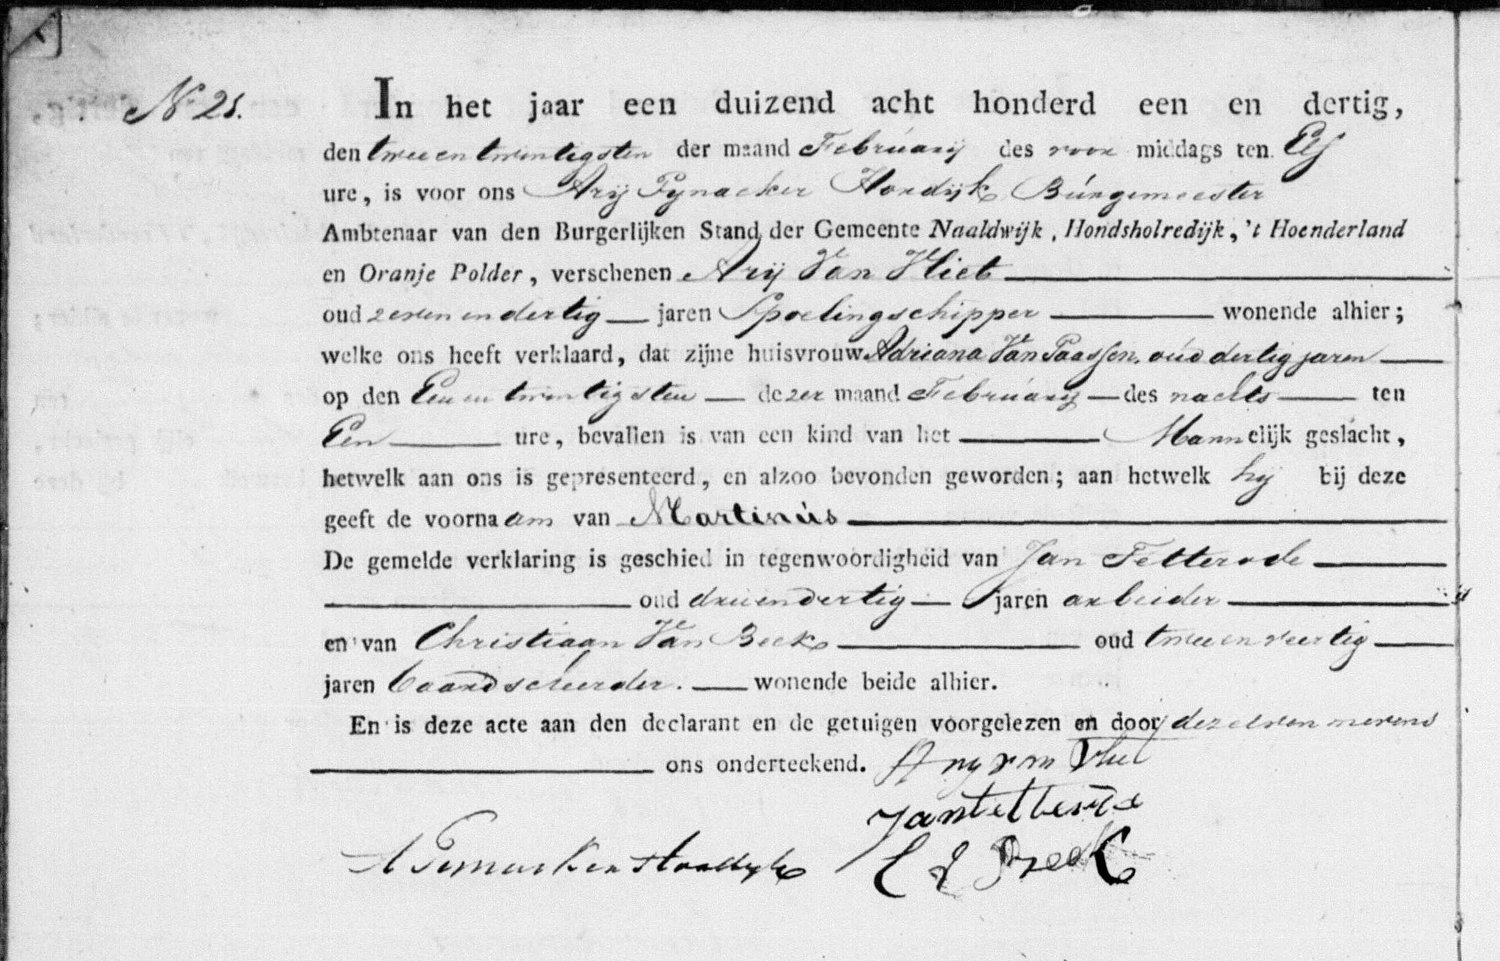 No 21. In het jaar een duizend acht honderd een en dertig,
den twee en twintigsten der maand Februarij des voor middags ten Elf
ure, is voor ons Arij Pynacker Hordijk Burgemeester
Ambtenaar van den Burgerlijken Stand der Gemeente Naaldwijk, Hondsholredijk, 't Hoenderland
en Oranje Polder, verschenen Arij Van Vliet
oud zeven en dertig jaren Spoelingschipper wonende alhier;
welke ons heeft verklaard, dat zijne huisvrouw Adriana Van Paassen, oud dertig jaren
op den Een en twintigsten dezer maand Februarij des nachts ten
Een ure, bevallen is van een kind van het Mannelijk geslacht,
hetwelk aan ons is gepresenteerd, en alzoo bevonden geworden; aan hetwelk hij bij deze
geeft de voornaam van Martinus
De gemelde verklaring is geschied in tegenwoordigheid van Jan Tetterode
oud drie en dertig jaren arbeider
en van Christiaan Van Beek oud twee en veertig
jaren baardscheerder. wonende beide alhier.
En is deze acte aan den declarant en de getuigen voorgelezen en door dezelven nevens
ons onderteekend. Ary van Vliet
Jan tetterode
C V Beek